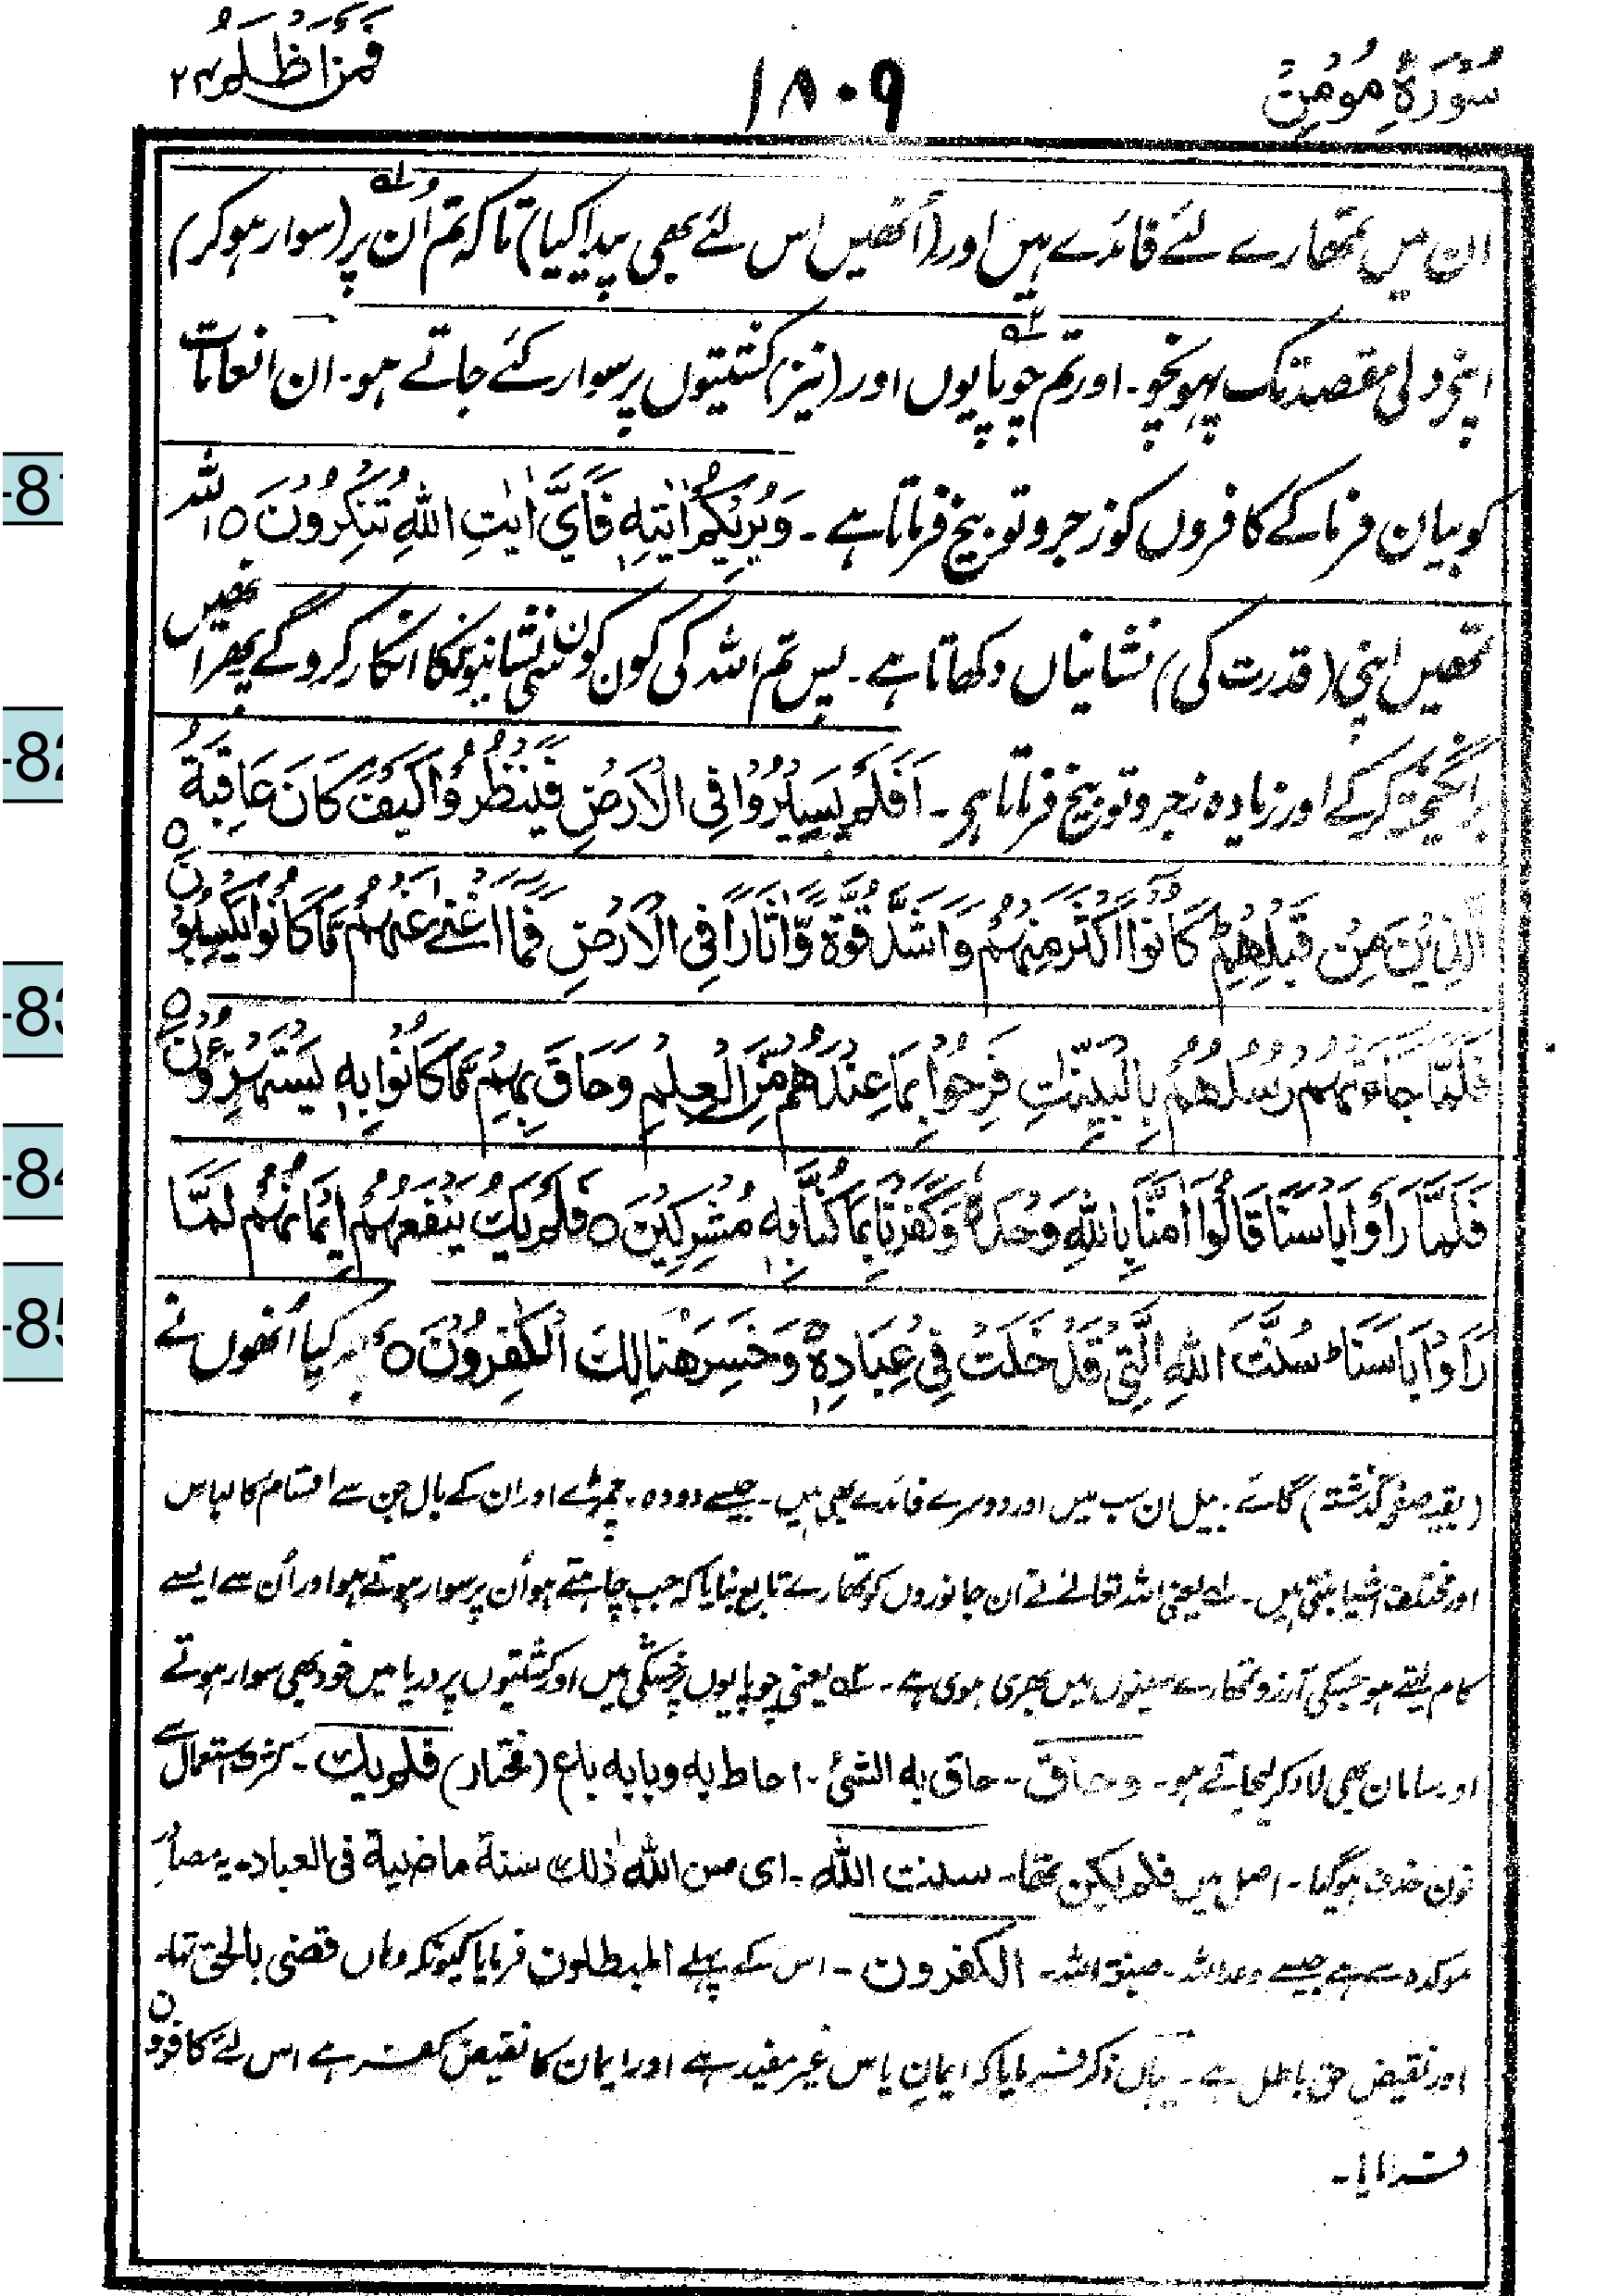 سُوْرَۃُ مُؤمِنْ
۱۸۰۹
فَمَنْ اَظْلَمُ ۲۴
ان میں تمھارے لئے فائدے ہیں اور (اُنھیں اس لئے بھی پیدا کیا) تاکہ تم اُن پر (سوار ہوکر)
اپنے دلی مقصد تک پہونچو۔ اور تم چوپایوں اور (نیز) کشتیوں پر سوار کئے جاتے ہو۔ ان انعامات
کو بیان فرما کے کافروں کو زجر و توبیخ فرماتا ہے۔ وَيُرِيْكُمْ اٰيٰتِهٖ فَاَيَّ اٰيٰتِ اللّٰهِ تُنْكِرُوْنَ ۝ اللہ
تمھیں اپنی (قدرت کی) نشانیاں دکھاتا ہے۔ پس تم اللہ کی کون کون سی نشانیونکا انکار کروگے پھر انھیں
برانگیختہ کرکے اور زیادہ زجر و توبیخ فرماتا ہے۔ اَفَلَمْ يَسِيْرُوْا فِي الْاَرْضِ فَيَنْظُرُوْا كَيْفَ كَانَ عَاقِبَةُ
الَّذِيْنَ مِنْ قَبْلِهِمْ ؕ كَانُوْا اَكْثَرَ مِنْهُمْ وَاَشَدَّ قُوَّةً وَّاٰثَارًا فِي الْاَرْضِ فَمَا اَغْنٰى عَنْهُمْ مَّا كَانُوْا يَكْسِبُوْنَ ۝
فَلَمَّا جَاءَتْهُمْ رُسُلُهُمْ بِالْبَيِّنٰتِ فَرِحُوْا بِمَا عِنْدَهُمْ مِّنَ الْعِلْمِ وَحَاقَ بِهِمْ مَّا كَانُوْا بِهٖ يَسْتَهْزِءُوْنَ ۝
فَلَمَّا رَاَوْا بَاْسَنَا قَالُوْا اٰمَنَّا بِاللّٰهِ وَحْدَهٗ وَكَفَرْنَا بِمَا كُنَّا بِهٖ مُشْرِكِيْنَ ۝ فَلَمْ يَكُ يَنْفَعُهُمْ اِيْمَانُهُمْ لَمَّا
رَاَوْا بَاْسَنَا ؕ سُنَّتَ اللّٰهِ الَّتِيْ قَدْ خَلَتْ فِيْ عِبَادِهٖ ۚ وَخَسِرَ هُنَالِكَ الْكٰفِرُوْنَ ۝ کیا اُنھوں نے
(بقیہ صفحہ گذشتہ) گائے۔ بیل ان سب میں اور دوسرے فائدے بھی ہیں۔ جیسے دودہ۔ چمڑے اور ان کے بال جن سے اقسام کا لباس
اور مختلف اشیا بنتی ہیں۔ ۱ یعنی اللہ تعالےٰ نے ان جانوروں کو تمھارے تابع بنایا کہ جب چاہتے ہو اُن پر سوار ہوتے ہو اور اُن سے ایسے
کام لیتے ہو جسکی آرزو تمھارے سینوں میں بھری ہوی ہے۔ ۲ یعنی چوپایوں پر خشکی میں اور کشتیوں پر دریا میں خود بھی سوار ہوتے
اور سامان بھی لاد کر لیجاتے ہو۔ وحاق۔ حاق به الشئ۔ احاط به وبابه باع (مختار) فلم يك۔ کثرت استعمال سے
نون حذف ہوگیا۔ اصل میں فلم يكن تھا۔ سنت الله۔ ای سن الله ذٰلك سنة ماضية فی العباد۔ یہ مصادر
موکدہ سے ہے جیسے وعد اللہ۔ صبغۃ اللہ۔ الكفرون۔ اس کے پہلے المبطلون فرمایا کیونکہ وہاں قضی بالحق تھا۔
اور نقیض حق باطل ہے۔ یہاں ذکر فرمایا کہ ایمانِ یاس غیر مفید ہے اور ایمان کا نقیض کفر ہے اس لئے کافرون
فرمایا۔
-81
-82
-83
-84
-85